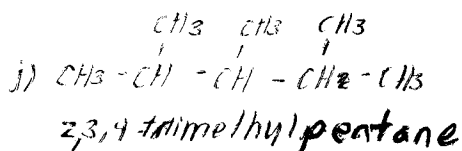 CH3 CH3 CH3
j) CH3 - CH - CH - CH2 - CH3
2,3,4 trimethylpentane